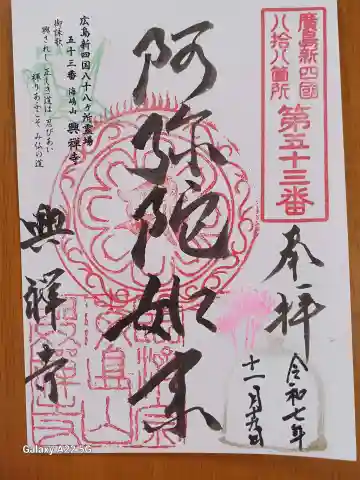 廣島新四國
八拾八箇所
第五十三番
奉拝
令和七年
十一月
阿弥陀如来
広島新四国八十八ヶ所霊場
五十三番 海嶋山 興祥寺
御詠歌
興されし 正しき道は 忍びあい
祥りあふこそ み仏の道
興祥寺
Galaxy A22 5G